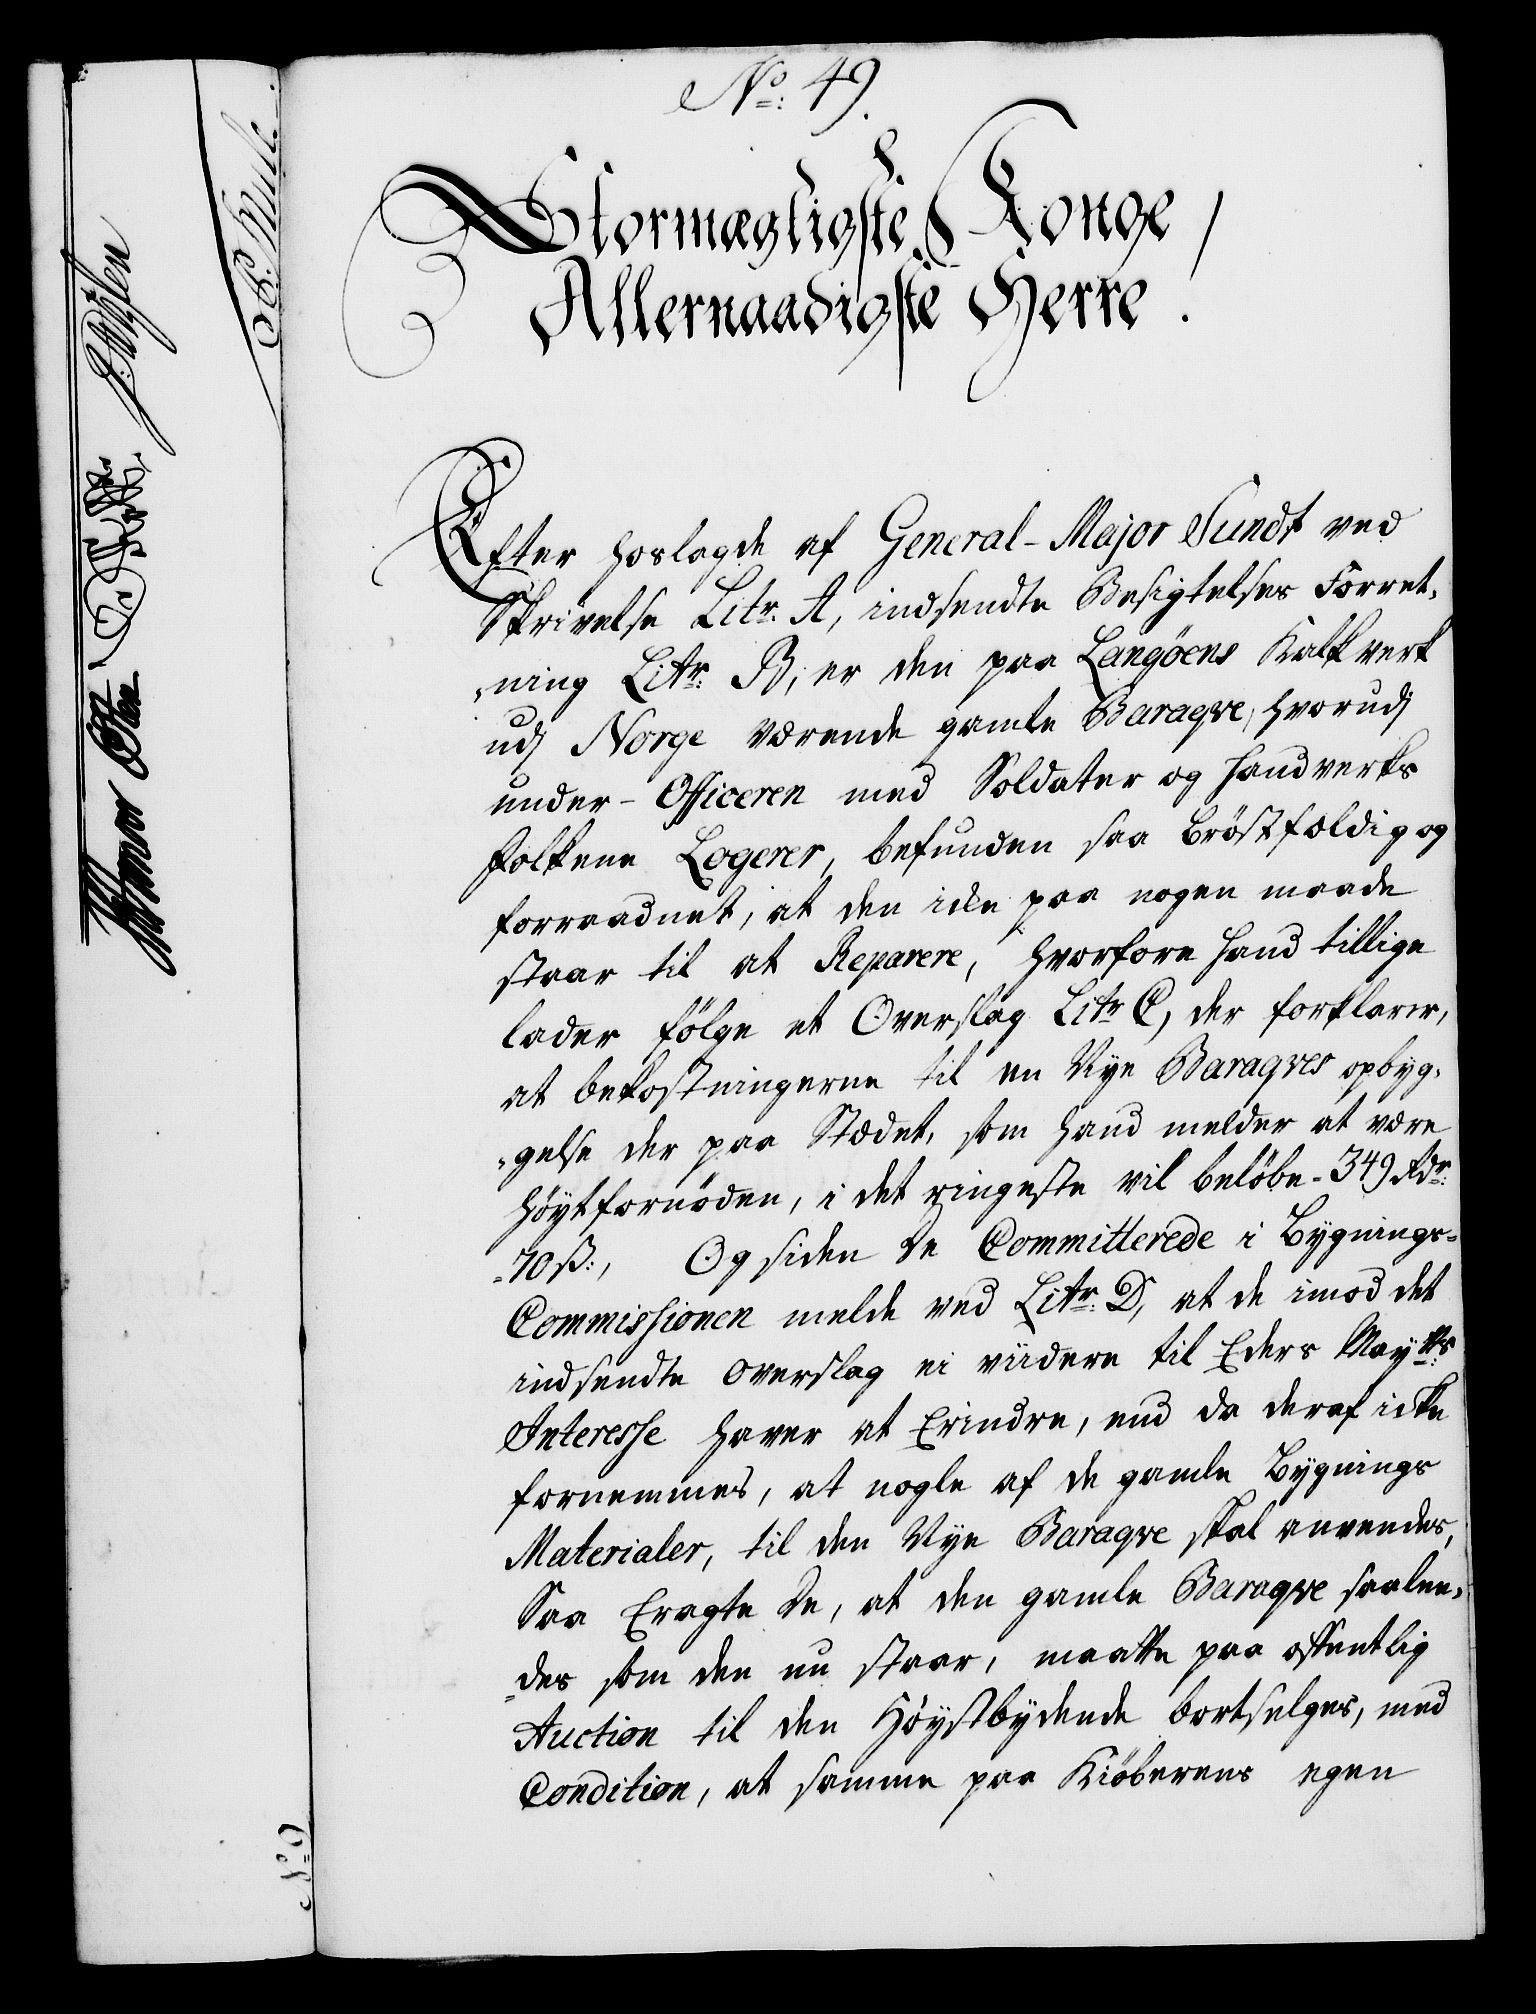 No: 49.
Stormægtigste Konge
Allernaadigste Herre!
Efter hoslagde af General-Major Sundt ved
Skrivelse Litr: A, indsendte Besigtelses Forret-
-ning Litr: B, er den paa Langöens Kalkverk
udj Norge værende gamle Baraqve, hvorudj
under-Officeren med Soldater og Handverks
folkene Logerer, befunden saa bröstfældig og
forraadnet, at den icke paa nogen maade
staar til at Reparere, hvorfore hand tillige
lader fölge et Overslag Litr C, der forklarer,
at bekostningerne til en Nye Baraqves opbyg-
-gelse der paa Stædet, som hand melder at være
höytfornöden, i det ringeste vil belöbe - 349 Rdr:
-70 ß:, Og siden De Committerede i Bygnings-
Commissionen melde ved Litr: D, at de imod det
indsendte overslag ei viidere til Eders Mayts:
Interesse haver at Erindre, end da deraf icke
fornemmes, at nogle af de gamle Bygnings
Materialer, til den Nye Baraqve skal anvendes,
Saa Eragte De, at den gamle Baraqve saalee-
-des som den nu staar, maatte paa offentlig
Auction til den Höystbydende bortselges, med
Condition, at samme paa Kiöberens egen
No